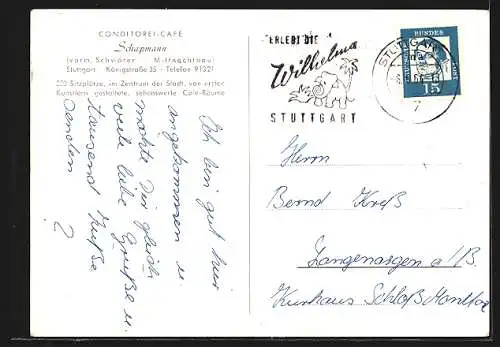 CONDITOREI-CAFE
Schapmann
(vorm. Schwörer Mittnachtbau)
Stuttgart Königstraße 35 - Telefon 91321
350 Sitzplätze, im Zentrum der Stadt, von ersten
Künstlern gestaltete, sehenswerte Café-Räume
Ich bin gut hier
angekommen u.
möchte Dir gleich
viele liebe Grüße u.
tausend Küße
senden
ERLEBT DIE
Wilhelma
STUTTGART
STUTTGART
7
DEUTSCHE BUNDESPOST
15
Herrn
Bernd Kreß
Langenargen a/B.
Kurhaus Schloß Montfort